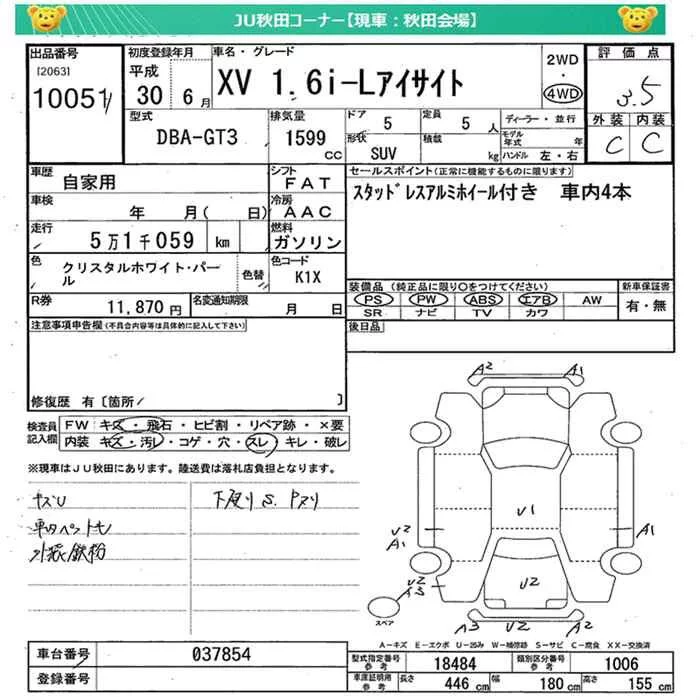 JU秋田コーナー【現車：秋田会場】
出品番号
[2063]
10051
初度登録年月
平成
30 6月
車名・グレード
XV 1.6i-Lアイサイト
2WD
・
4WD
評価点
3.5
外装 内装
C C
型式
DBA-GT3
排気量
1599
CC
ドア 5
定員 5 人
形状 SUV
積載 kg
ディーラー・並行
モデル年式 年
ハンドル 左・右
車歴
自家用
シフト
FAT
車検
年 月( 日)
冷房
AAC
走行
5万1千059 km
燃料
ガソリン
色
クリスタルホワイト・パール
色替
色コード
K1X
R券
11,870円
名変通知期限
月 日
セールスポイント(正常に機能するものに限ります)
スタッドレスアルミホイール付き 車内4本
装備品(純正品に限り○をつけてください)
PS PW ABS エアB AW
SR ナビ TV カワ
新車保証書
有・無
後日品
注意事項申告欄(不具合内容等は具体的に記入して下さい)
修復歴 有〔箇所/ 〕
検査員記入欄
FW キズ・飛石・ヒビ割・リペア跡・×要
内装 キズ・汚レ・コゲ・穴・スレ・キレ・破レ
※現車はJU秋田にあります。陸送費は落札店負担となります。
キズU
下廻りS.
外装鉄粉
A2 A1
U1
U2 A1
A1
U2 A3
U2
スペア
A3 U2 A2
A－キズ E－エクボ U－凹み W－補修跡 S－サビ C－腐食 XX－交換済
車台番号
037854
登録番号
型式指定番号 参考
18484
類別区分番号 参考
1006
車庫証明用 参考
長さ 446 cm
幅 180 cm
高さ 155 cm